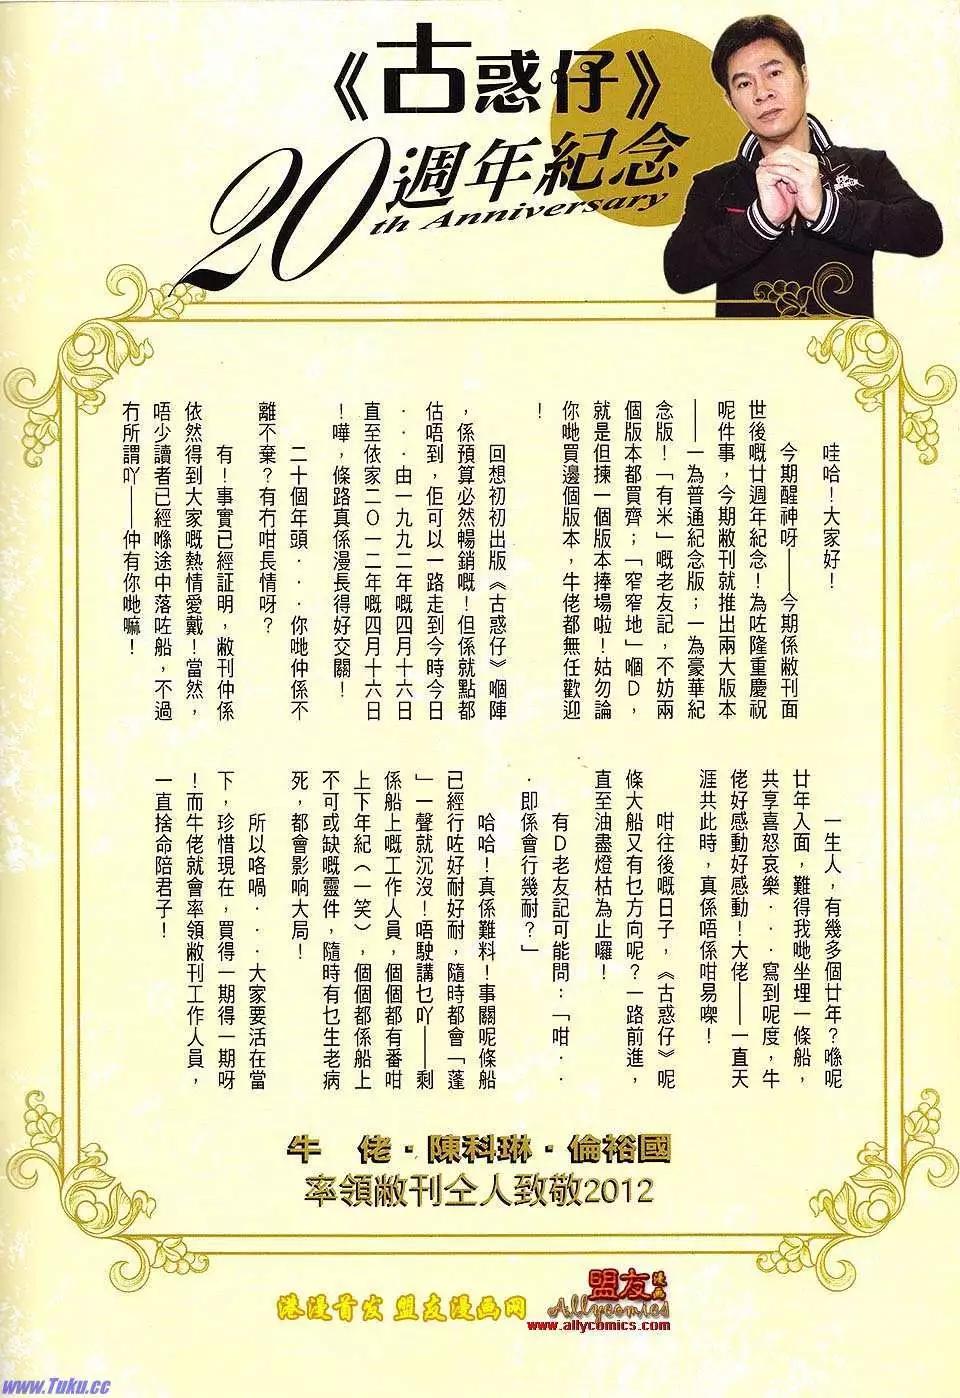 《古惑仔》
20週年紀念
th Anniversary
哇哈！大家好！
今期醒神呀——今期係敝刊面
世後嘅廿週年紀念！為咗隆重慶祝
呢件事，今期敝刊就推出兩大版本
——一為普通紀念版；一為豪華紀
念版！「有米」嘅老友記，不妨兩
個版本都買齊；「窄窄地」嗰D，
就是但揀一個版本捧場啦！姑勿論
你哋買邊個版本，牛佬都無任歡迎
！
回想初初出版《古惑仔》嗰陣
，係預算必然暢銷嘅！但係就點都
估唔到，佢可以一路走到今時今日
．．．由一九九二年嘅四月十六日
直至依家二０一二年嘅四月十六日
！嘩，條路真係漫長得好交關！
二十個年頭．．．你哋仲係不
離不棄？有冇咁長情呀？
有！事實已經証明，敝刊仲係
依然得到大家嘅熱情愛戴！當然，
唔少讀者已經喺途中落咗船，不過
冇所謂吖——仲有你哋嘛！
一生人，有幾多個廿年？喺呢
廿年入面，難得我哋坐埋一條船，
共享喜怒哀樂．．．寫到呢度，牛
佬好感動好感動！大佬——一直天
涯共此時，真係唔係咁易㗎！
咁往後嘅日子，《古惑仔》呢
條大船又有乜方向呢？一路前進，
直至油盡燈枯為止囉！
有D老友記可能問：「咁．．
．即係會行幾耐？」
哈哈！真係難料！事關呢條船
已經行咗好耐好耐，隨時都會「蓬
」一聲就沉沒！唔駛講乜吖——剩
係船上嘅工作人員，個個都有番咁
上下年紀（一笑），個個都係船上
不可或缺嘅靈件，隨時有乜生老病
死，都會影响大局！
所以咯喎．．．大家要活在當
下，珍惜現在，買得一期得一期呀
！而牛佬就會率領敝刊工作人員，
一直捨命陪君子！
牛　佬·陳科琳·倫裕國
率領敝刊仝人致敬2012
港漫首发 盟友漫画网
盟友漫画
Allycomics
www.allycomics.com
www.Tuku.cc